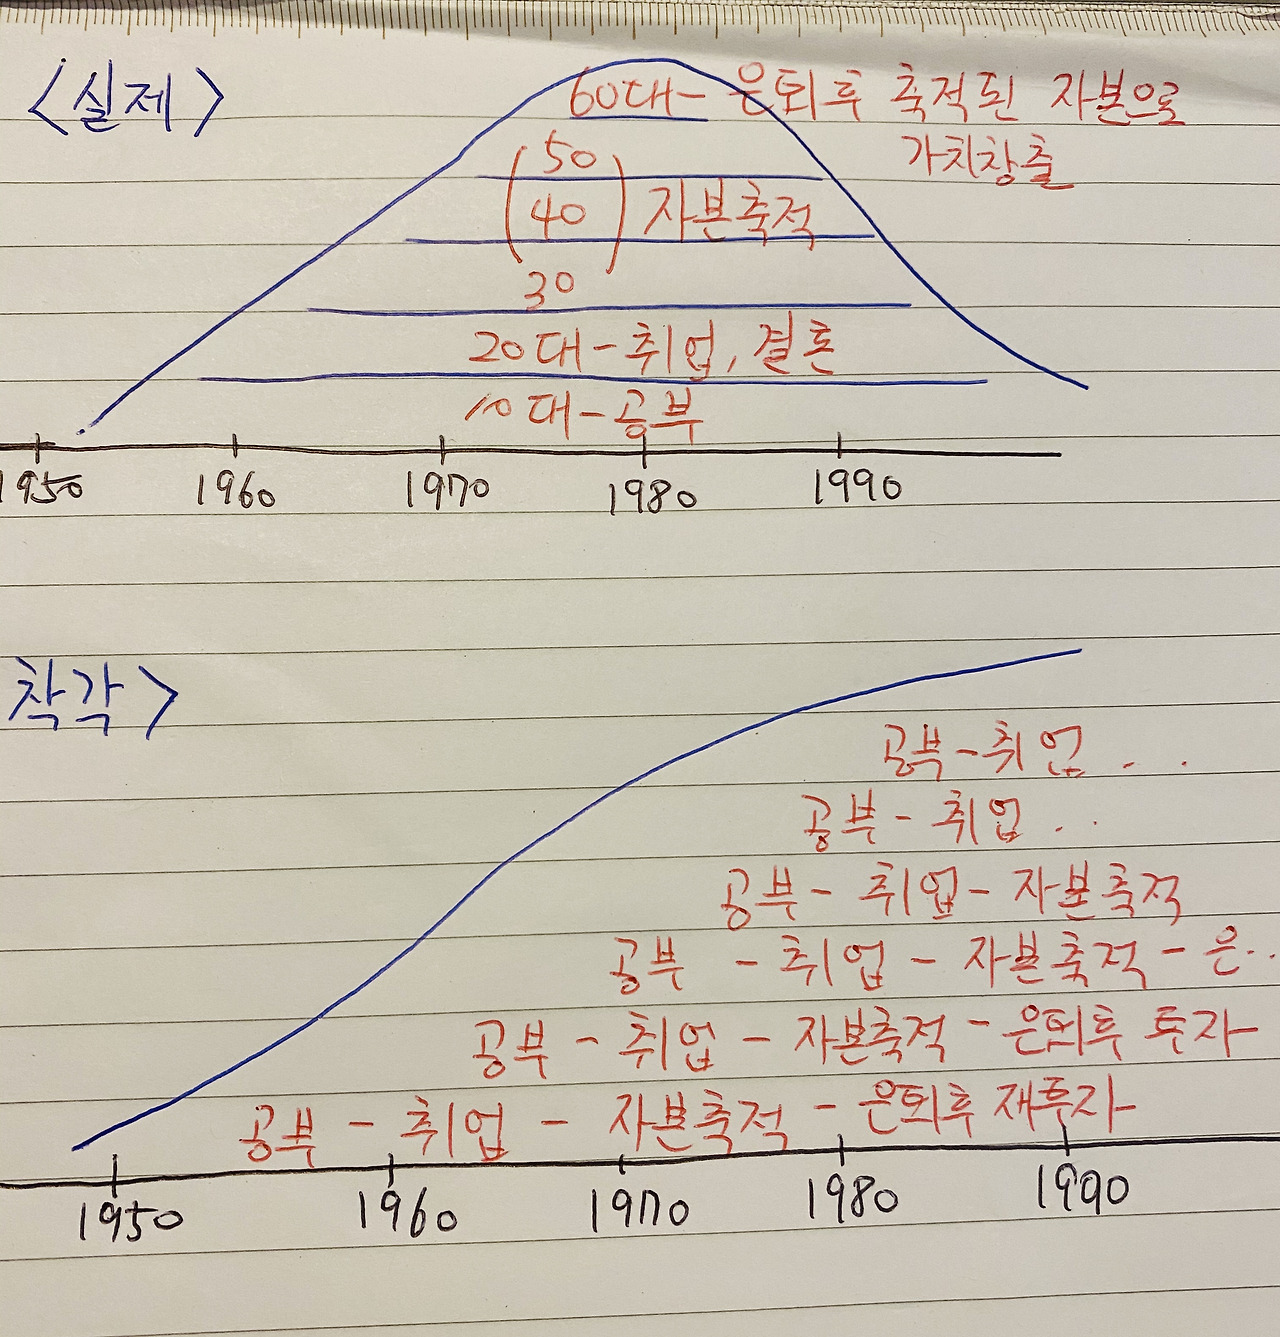 <실제>
60대- 은퇴후 축적된 자본으로
가치창출
50
40 자본축적
30
20대-취업, 결혼
10대-공부
1950 1960 1970 1980 1990
착각>
공부-취업 . .
공부- 취업 . .
공부- 취업- 자본축적
공부 - 취업 - 자본축적 - 은..
공부 - 취업 - 자본축적 - 은퇴후 투자-
공부 - 취업 - 자본축적 - 은퇴후 재투자-
1950 1960 1970 1980 1990